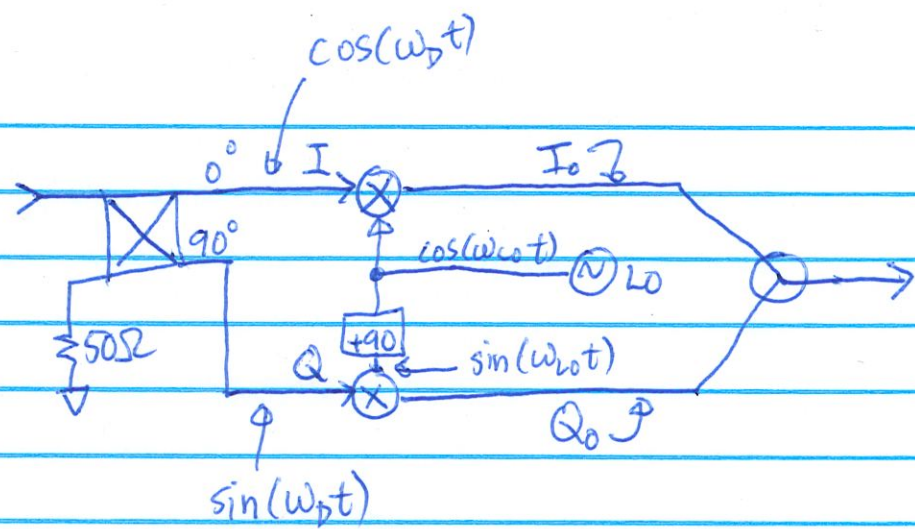 cos(ω_D t)
0° I I₀
90° cos(ω_LO t) LO
+90
50Ω Q sin(ω_LO t)
Q₀
sin(ω_D t)